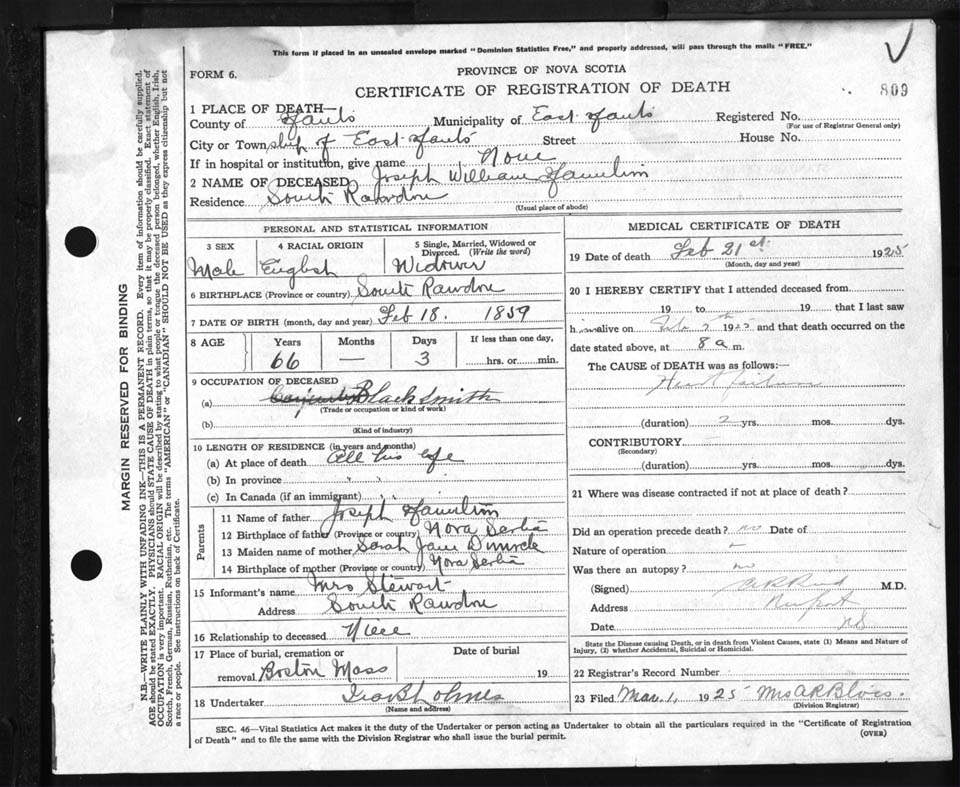 This form if placed in an unsealed envelope marked "Dominion Statistics Free," and properly addressed, will pass through the mails "FREE."
FORM 6.
PROVINCE OF NOVA SCOTIA
CERTIFICATE OF REGISTRATION OF DEATH
809
1 PLACE OF DEATH—
County of Hants Municipality of East Hants Registered No.
(For use of Registrar General only)
City or Township of East Hants Street House No.
If in hospital or institution, give name None
2 NAME OF DECEASED Joseph William Hamilton
Residence South Rawdon
(Usual place of abode)
PERSONAL AND STATISTICAL INFORMATION
3 SEX 4 RACIAL ORIGIN 5 Single, Married, Widowed or Divorced. (Write the word)
Male English Widower
6 BIRTHPLACE (Province or country) South Rawdon
7 DATE OF BIRTH (month, day and year) Feb 18. 1859
8 AGE Years Months Days If less than one day,
66 — 3 hrs. or min.
9 OCCUPATION OF DECEASED
(a) Blacksmith
(Trade or occupation or kind of work)
(b)
(Kind of industry)
10 LENGTH OF RESIDENCE (in years and months)
(a) At place of death all his life
(b) In province " "
(c) In Canada (if an immigrant) " "
Parents
11 Name of father Joseph Hamilton
12 Birthplace of father (Province or country) Nova Scotia
13 Maiden name of mother Sarah Jane Dimock
14 Birthplace of mother (Province or country) Nova Scotia
15 Informant's name Mrs Stewart
Address South Rawdon
16 Relationship to deceased Niece
17 Place of burial, cremation or removal Boston Mass Date of burial 19
18 Undertaker Ira B Holmes
(Name and address)
MEDICAL CERTIFICATE OF DEATH
19 Date of death Feb 21st 1925
(Month, day and year)
20 I HEREBY CERTIFY that I attended deceased from
19 to 19 that I last saw
him alive on Feb 7th 1925 and that death occurred on the
date stated above, at 8 a m.
The CAUSE of DEATH was as follows:—
Heart failure
(duration) 2 yrs. mos. dys.
CONTRIBUTORY
(Secondary)
(duration) yrs. mos. dys.
21 Where was disease contracted if not at place of death?
Did an operation precede death? no Date of
Nature of operation
Was there an autopsy? no
(Signed) M.D.
Address Newport
Date NS
State the Disease causing Death, or in death from Violent Causes, state (1) Means and Nature of
Injury, (2) whether Accidental, Suicidal or Homicidal.
22 Registrar's Record Number
23 Filed Mar. 1, 1925 Mrs A R Blois.
(Division Registrar)
SEC. 46—Vital Statistics Act makes it the duty of the Undertaker or person acting as Undertaker to obtain all the particulars required in the "Certificate of Registration
of Death" and to file the same with the Division Registrar who shall issue the burial permit. (OVER)
MARGIN RESERVED FOR BINDING
N.B.—WRITE PLAINLY WITH UNFADING INK—THIS IS A PERMANENT RECORD. Every item of information should be carefully supplied.
AGE should be stated EXACTLY. PHYSICIANS should STATE CAUSE OF DEATH in plain terms, so that it may be properly classified. Exact statement of
OCCUPATION is very important. RACIAL ORIGIN will be described by stating to what people or tongue the deceased person belonged, whether English, Irish,
Scotch, French, German, Russian, Ruthenian, etc. The terms "AMERICAN" or "CANADIAN" SHOULD NOT BE USED as they express citizenship but not
a race or people. See instructions on back of Certificate.